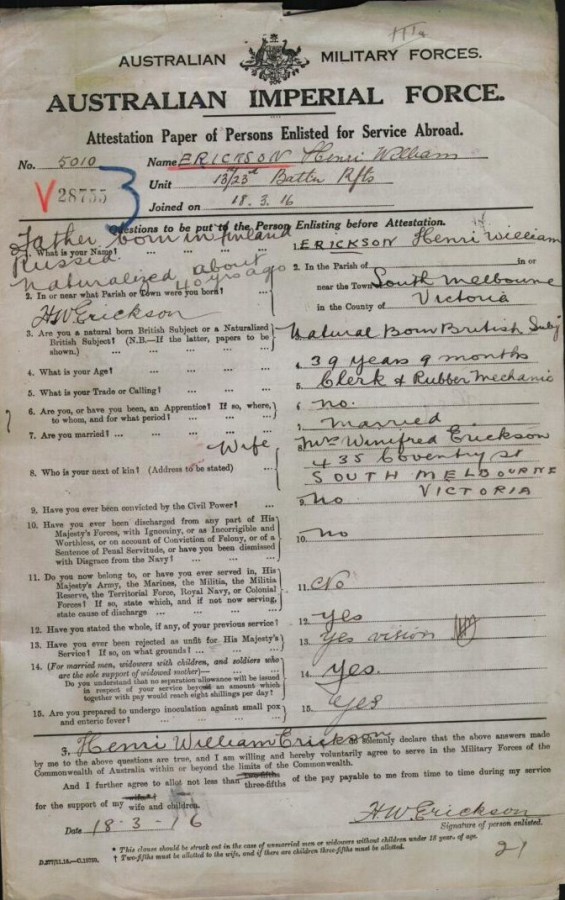 AUSTRALIAN MILITARY FORCES.
AUSTRALIAN IMPERIAL FORCE.
Attestation Paper of Persons Enlisted for Service Abroad.
No. 5010 Name ERICKSON Henri William
V 28755
Unit 13/23rd Battn Rfts
Joined on 18.3.16
Questions to be put to the Person Enlisting before Attestation.
Father born in Finland
Russia
Naturalized about
40 yrs ago
H.W Erickson
1. What is your Name? ... ERICKSON Henri William
2. In or near what Parish or Town were you born? ...
2. In the Parish of in or
near the Town South Melbourne
in the County of Victoria
3. Are you a natural born British Subject or a Naturalized British Subject? (N.B.—If the latter, papers to be shown.) ... Natural Born British Subj
4. What is your Age? ... 4. 39 years 9 months
5. What is your Trade or Calling? ... 5. Clerk & Rubber Mechanic
6. Are you, or have you been, an Apprentice? If so, where, to whom, and for what period? ... 6. no.
7. Are you married? ... 7. Married
8. Who is your next of kin? (Address to be stated) Wife
Mrs Winifred Erickson
435 Coventry st
SOUTH MELBOURNE
VICTORIA
9. Have you ever been convicted by the Civil Power? ... 9. No
10. Have you ever been discharged from any part of His
Majesty's Forces, with Ignominy, or as Incorrigible and
Worthless, or on account of Conviction of Felony, or of a
Sentence of Penal Servitude, or have you been dismissed
with Disgrace from the Navy? ... 10. no
11. Do you now belong to, or have you ever served in, His
Majesty's Army, the Marines, the Militia, the Militia
Reserve, the Territorial Force, Royal Navy, or Colonial
Forces? If so, state which, and if not now serving,
state cause of discharge ... 11. No
12. Have you stated the whole, if any, of your previous service? 12. yes
13. Have you ever been rejected as unfit for His Majesty's
Service? If so, on what grounds? ... 13. Yes vision
14. (For married men, widowers with children, and soldiers who
are the sole support of widowed mother)—
Do you understand that no separation allowance will be issued
in respect of your service beyond an amount which
together with pay would reach eight shillings per day? 14. yes.
15. Are you prepared to undergo inoculation against small pox
and enteric fever? ... 15. Yes
I, Henri William Erickson do solemnly declare that the above answers made
by me to the above questions are true, and I am willing and hereby voluntarily agree to serve in the Military Forces of the
Commonwealth of Australia within or beyond the limits of the Commonwealth.
And I further agree to allot not less than two-fifths three-fifths of the pay payable to me from time to time during my service
for the support of my wife and children.
H.W. Erickson
Date 18-3-16 Signature of person enlisted.
* This clause should be struck out in the case of unmarried men or widowers without children under 18 year. of age.
† Two-fifths must be allotted to the wife, and if there are children three-fifths must be allotted.
21